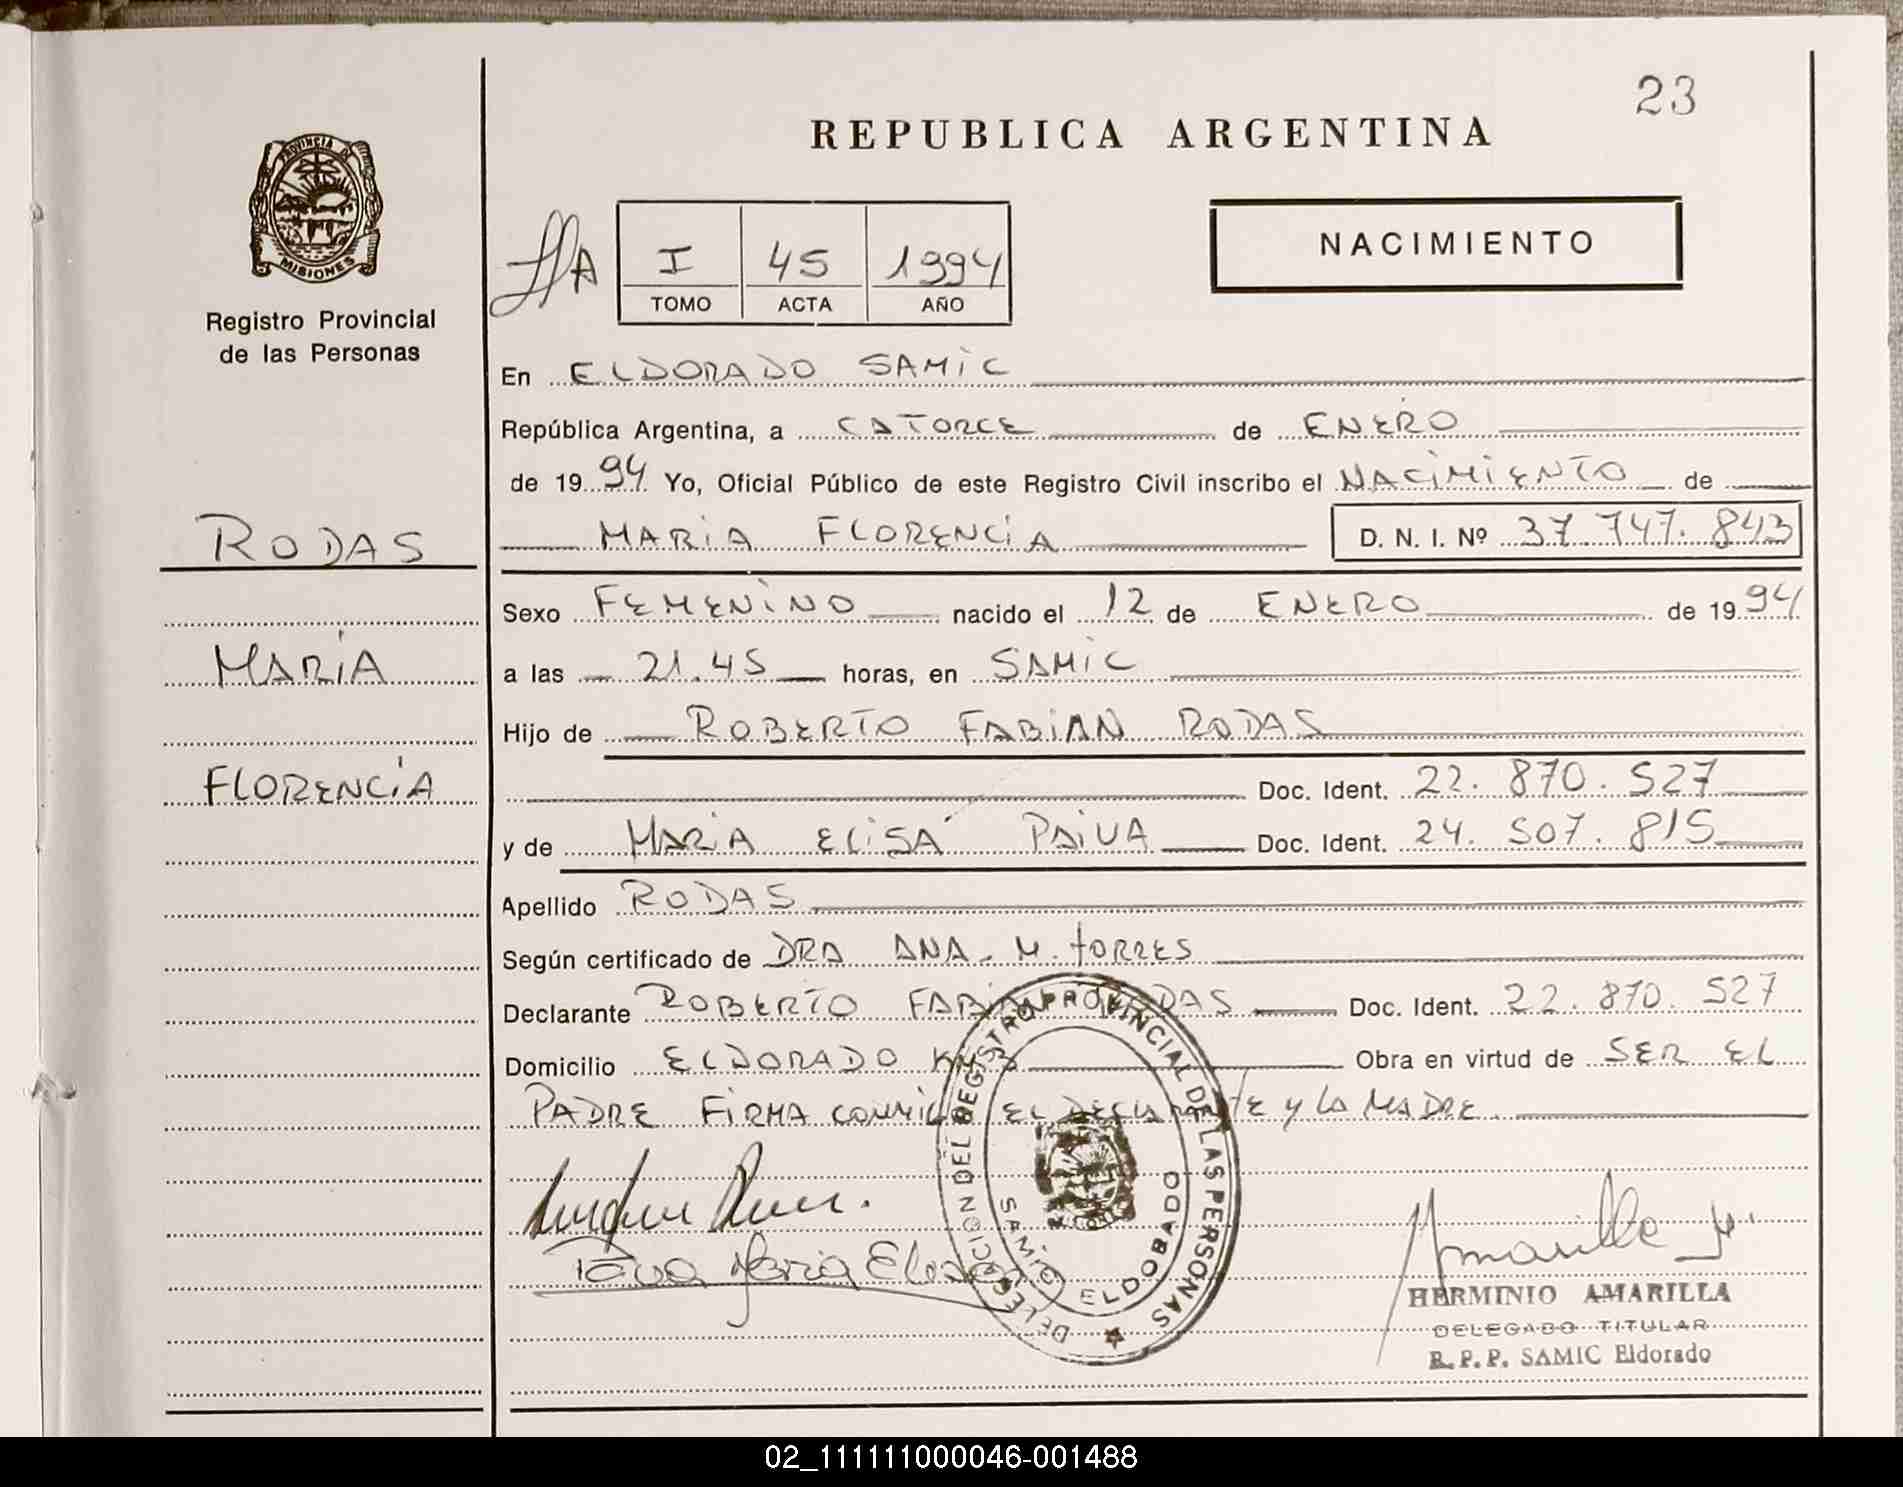 23
REPUBLICA ARGENTINA
PROVINCIA DE
MISIONES
Registro Provincial
de las Personas
A
I 45 1994
TOMO ACTA AÑO
NACIMIENTO
En ELDORADO SAMIC
República Argentina, a CATORCE de ENERO
de 1994 Yo, Oficial Público de este Registro Civil inscribo el NACIMIENTO de
RODAS
MARIA FLORENCIA D. N. I. Nº 37.747.843
Sexo FEMENINO nacido el 12 de ENERO de 1994
MARIA
a las 21.45 horas, en SAMIC
Hijo de ROBERTO FABIAN RODAS
FLORENCIA
Doc. Ident. 22.870.527
y de MARIA ELISA PAIVA Doc. Ident. 24.507.815
Apellido RODAS
Según certificado de DRA ANA. M. TORRES
Declarante ROBERTO FABIAN RODAS Doc. Ident. 22.870.527
Domicilio ELDORADO Obra en virtud de SER EL
PADRE FIRMA CONMIGO EL DECLARANTE Y LA MADRE.
DELEGACION DEL REGISTRO PROVINCIAL DE LAS PERSONAS
SAMIC ELDORADO
Maria Elisa
Amarilla H.
HERMINIO AMARILLA
DELEGADO TITULAR
R.P.P. SAMIC Eldorado
02_111111000046-001488